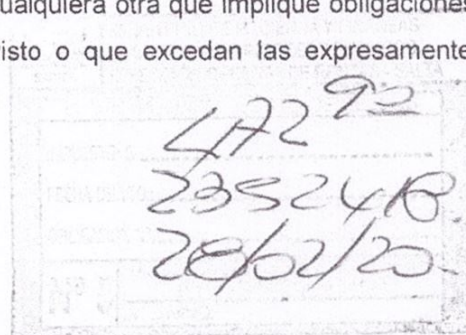 cualquiera otra que implique obligaciones
isto o que excedan las expresamente
472 92
2352418
28/02/20